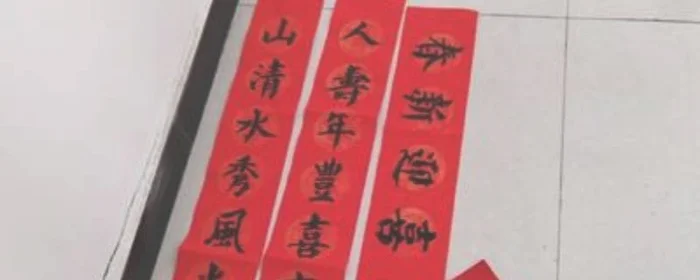 喜迎新春
人壽年豐喜
山清水秀風